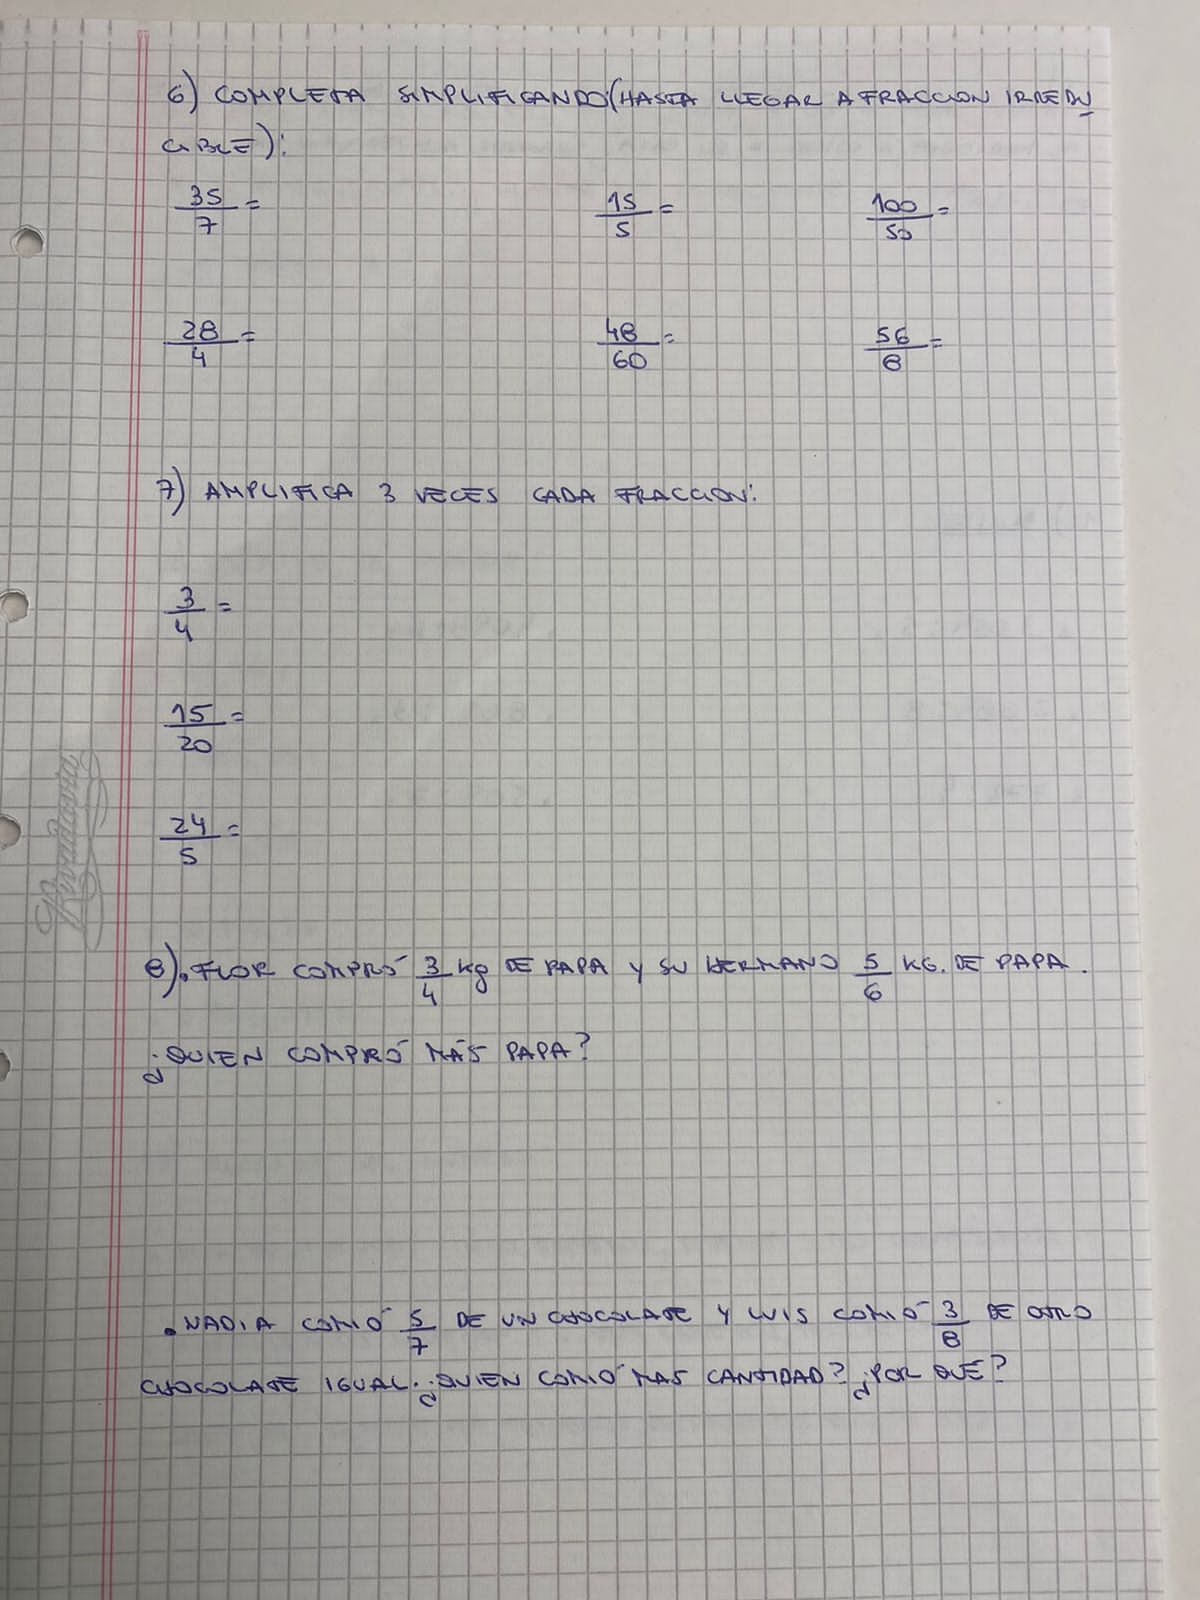 6) COMPLETA SIMPLIFICANDO:(HASTA LLEGAR A FRACCION IRREDU
CIBLE):
35/7 = 15/5 = 100/50 =
28/4 = 48/60 = 56/8 =
7) AMPLIFICA 3 VECES CADA FRACCION:
3/4 =
15/20 =
24/5 =
Rivadavia
8). FLOR COMPRÓ 3/4 kg DE PAPA Y SU HERMANO 5/6 KG. DE PAPA.
¿QUIEN COMPRÓ MÁS PAPA?
. NADIA COMIÓ 5/7 DE UN CHOCOLATE Y LUIS COMIÓ 3/8 DE OTRO
CHOCOLATE IGUAL. ¿QUIEN COMIÓ MAS CANTIDAD? ¿POR QUÉ?